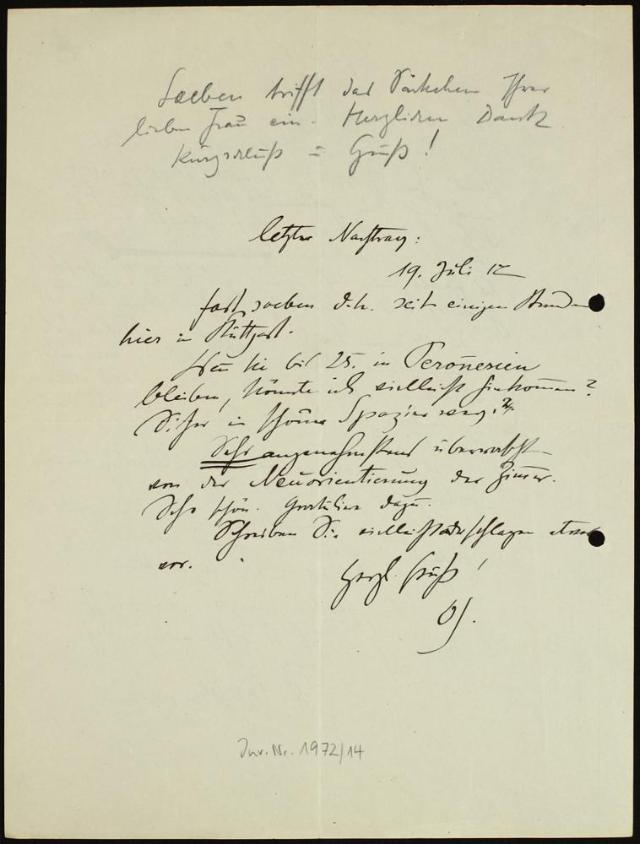 Soeben trifft das Päckchen Ihrer
lieben Frau ein. Herzlichen Dank
Kurzschluß = Gruß!
letzter Nachtrag:
19. Juli 12
fast soeben d.h. seit einigen Stunden
hier in Stuttgart.
bis 25. in Peronesien
bleiben, könnte ich vielleicht hinkommen?
Sicher in schöne Spazierweg.
Sehr angenehmstens überrascht
von der Neuorientierung der Zimmer.
Sehr schön. Gratuliere dazu.
Schreiben Sie vielleicht oder schlagen etwas
vor.
Herzl. Gruß!
OS.
Inv. Nr. 1972/14